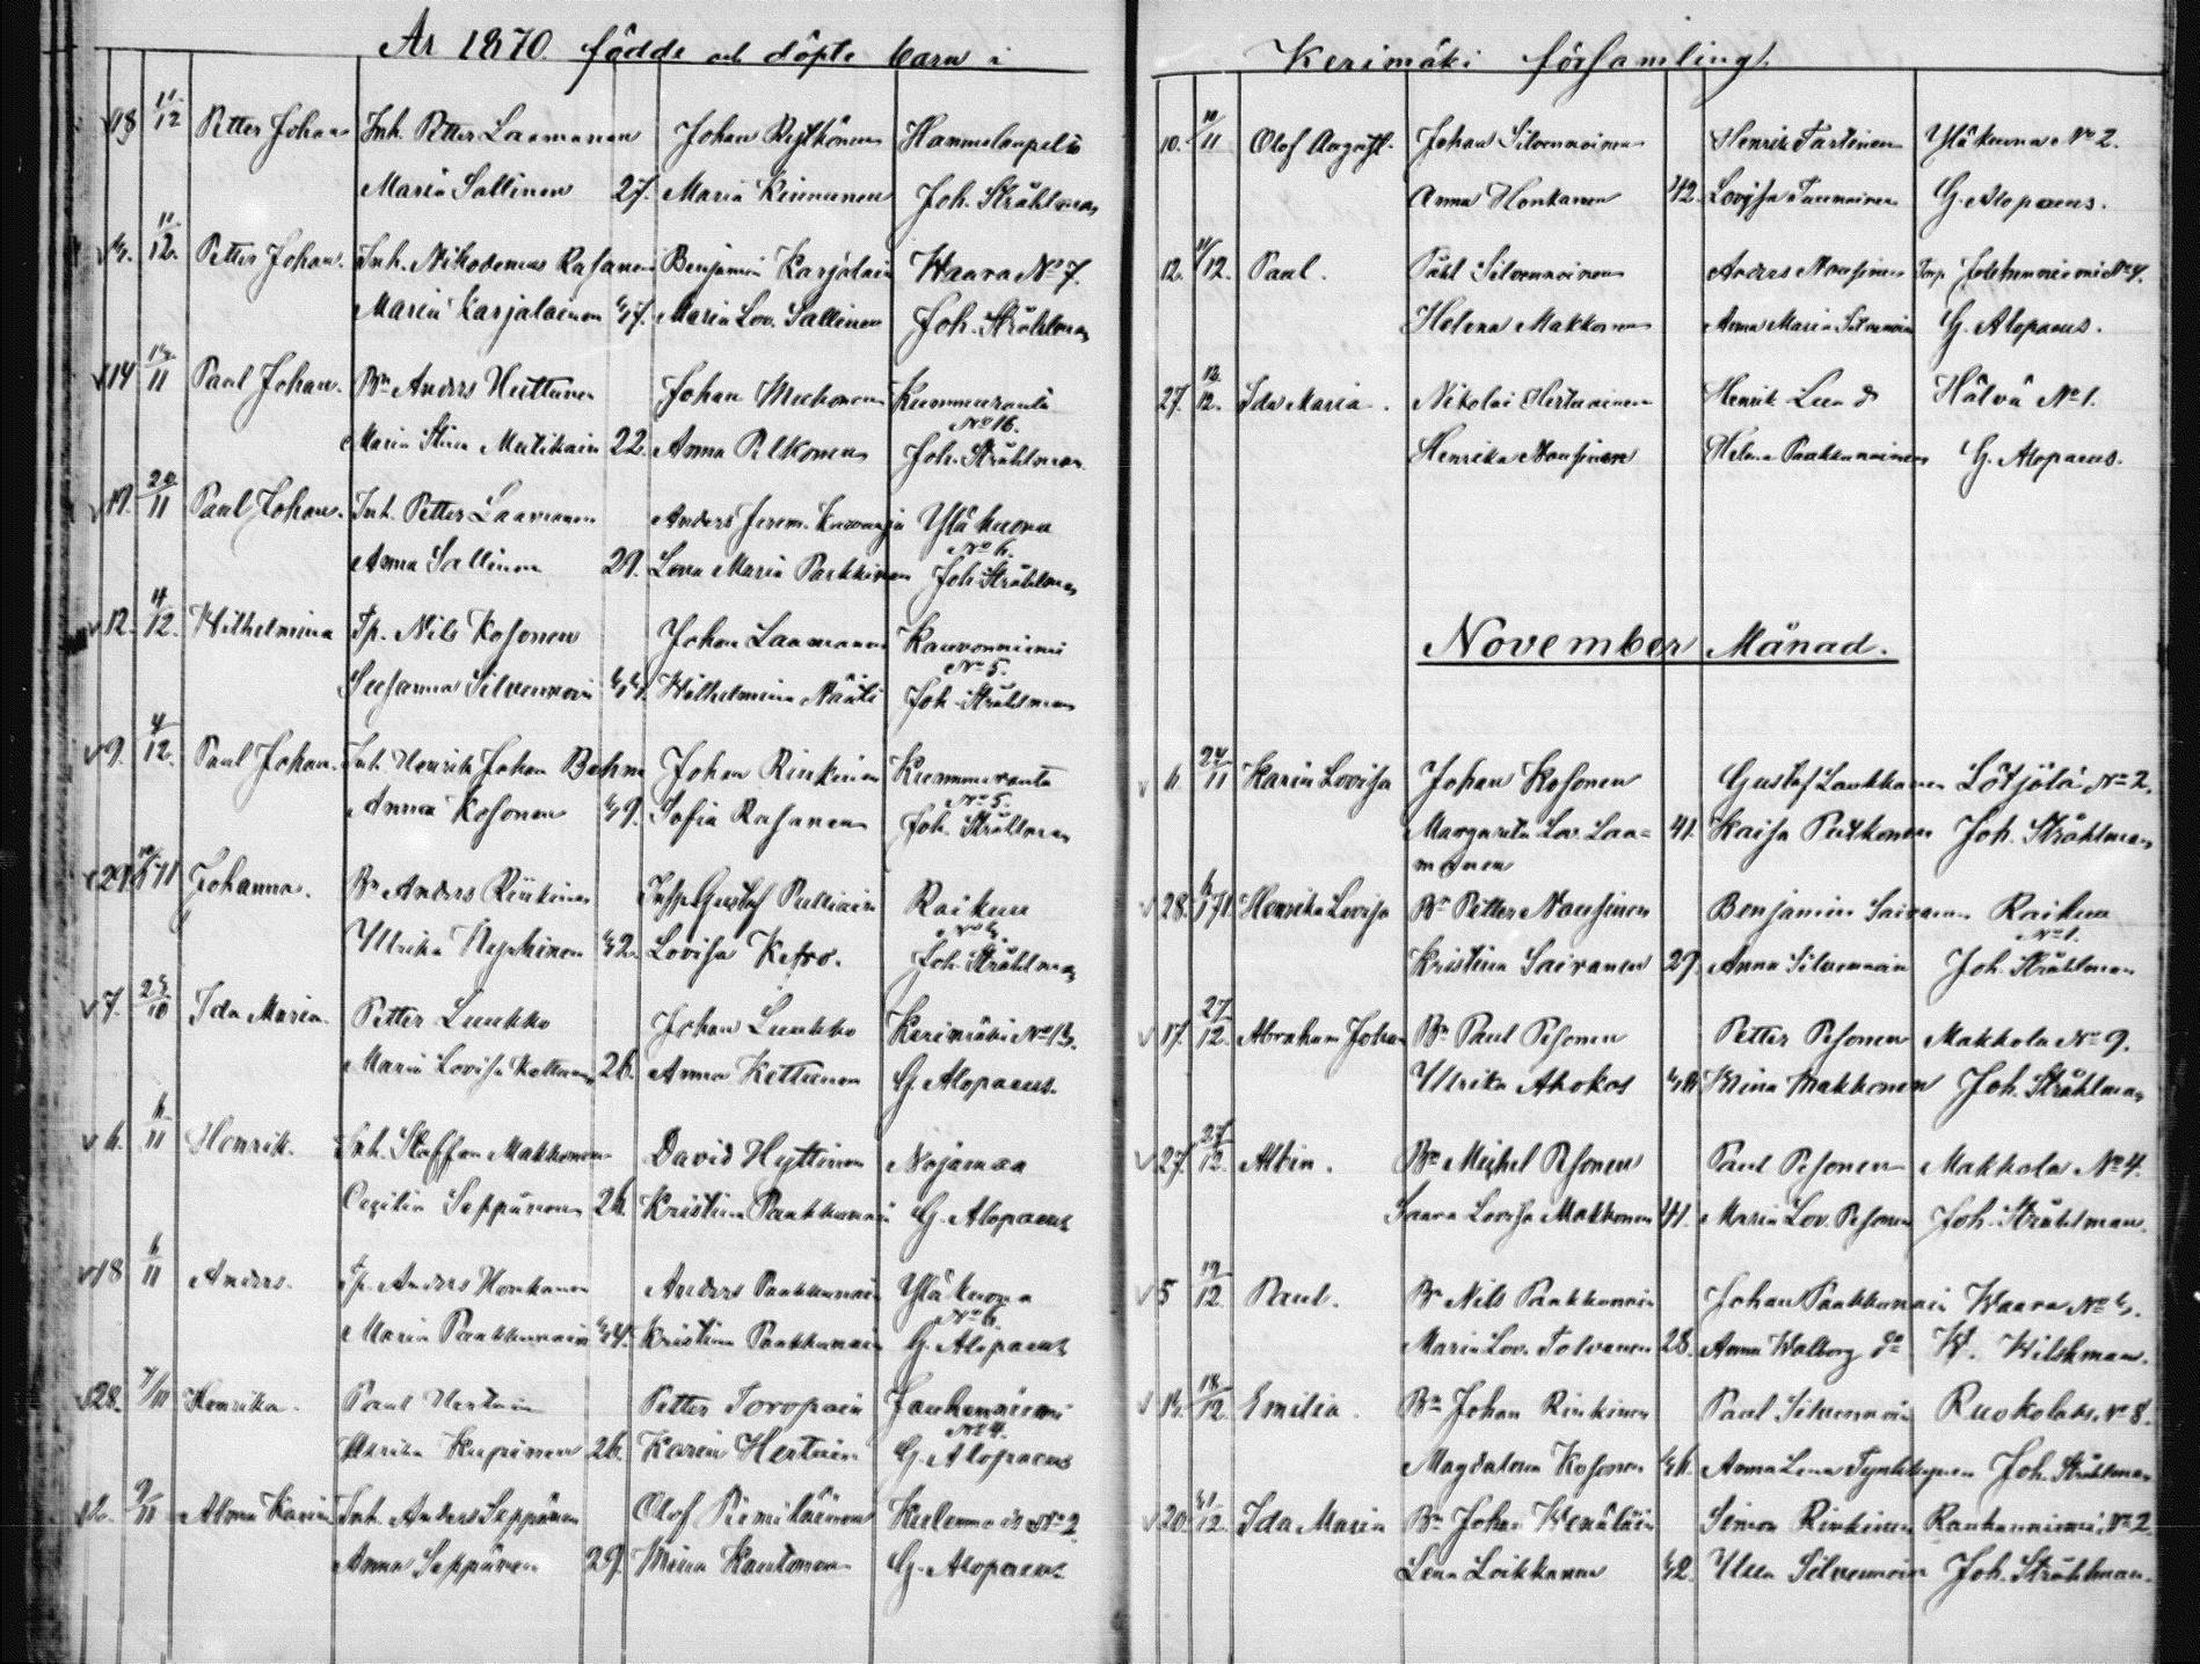 År 1870. födde och döpte barn i
18 11/12 Petter Johan Inh. Petter Laamanen Johan Hammelanpelto
Maria Sallinen 27. Maria Kinnunen Joh. Stråhlman
11/12. Petter Johan. Inh. Nikodemus Rasanen Benjamin Karjalain Waara No 7.
Maria Karjalainen 37. Maria Lov. Sallinen Joh. Stråhlman
14 11 Paul Johan. Bn Anders Huttunen Johan Muhonen Kummuranta
No 16.
Maria Stina Mutikain 22. Anna Pelkonen Joh. Stråhlman
19. 20/11 Paul Johan. Inh. Petter Laamanen Anders Jerem. Yläkuona
No 6.
Anna Sallinen 29. Lena Maria Parkkinen Joh. Stråhlman
12. 4/12. Wilhelmina Tp. Nils Kosonen Johan Laamanen Rauvonniemi
No 5.
Susanna Silvennoin 33. Wilhelmina Joh. Stråhlman
9. 4/12. Paul Johan. Inh. Henrik Johan Behm Johan Rinkinen Kummuranta
No 5.
Anna Kosonen 39. Sofia Rasanen Joh. Stråhlman
29. Johanna. Bn Anders Rinkinen Gustaf Pulliain Raikuu
Ulrika 32. Lovisa Joh. Stråhlman
7. 23/10 Ida Maria. Petter Luukko Johan Luukko Kerimäki No 13.
Maria Lovisa 26. Anna Kettunen G. Alopaeus.
6. 6/11 Henrik. Inh. Staffan Makkonen David Hyttinen Nojamaa
Cecilia Seppänen 26. Kristina Paakkunain G. Alopaeus
18 6/11 Anders. Tp. Anders Honkanen Anders Paakkunain Yläkuona
No 6.
Maria Paakkunain 34. Kristina Paakkunain G. Alopaeus
28. 7/11 Henrika. Paul Hertuin Petter Toropain Jouhenniemi
No 4.
Ulrika Kupiinen 26. Karin Hertuin G. Alopaeus
2. 9/11 Alma Karin Inh. Anders Seppänen Olof No 2
Anna Seppänen 29. Mina Kautonen G. Alopaeus
Kerimäki församling.
10. 11 Olof August. Johan Silvennoinen Henrik Tartinen Yläkuona No 2.
Anna Honkanen 42. Lovisa G. Alopaeus.
12. 11/12. Paul. Påhl Silvennoinen Anders Nousinen No 4.
Helena Makkonen Anna Maria Silvennoin G. Alopaeus.
27. 12/12. Ida Maria. Nikolai Hertuainen Henrik Lund Hälvä No 1.
Henrika Nousinen Helena Paakkunainen G. Alopaeus.
November Månad.
6 24/11 Karin Lovisa Johan Kosonen Gustaf Laukkanen Lötjölä No 2.
Margareta Lov. Laa= 41. Kaisa Putkonen Joh. Stråhlman
manen
28. Henrika Lovisa Bn Petter Nousinen Benjamin Sairanen Raikuu
No 1.
Kristina Sairanen 29. Anna Silvennoin Joh. Stråhlman
17. 27/12. Abraham Johan Bn Paul Pesonen Petter Pesonen Makkola No 9.
Ulrika Ahokas Mina Makkonen Joh. Stråhlman
27. 27/12. Albin. Bn Michel Pesonen Paul Pesonen Makkola No 4.
Saara Lovisa Makkonen 41. Maria Lov. Pesonen Joh. Stråhlman.
5 19/12 Paul. Bn Nils Paakkunain Johan Paakkunain Waara No 3.
Maria Lov. Tolvanen 28. Anna Walborg do W. Wilskman.
18/12. Emilia. Bn Johan Rinkinen Paul Silvennoin Ruokolaks No 8.
Magdalena Kosonen 36. Anna Lena Tynkkynen Joh. Stråhlman
20. 12. Ida Maria Bn Johan Wenäläin Simon Rinkinen Rauhanniemi No 2.
Lena Loikkanen 32. Ulla Silvennoin Joh. Stråhlman.